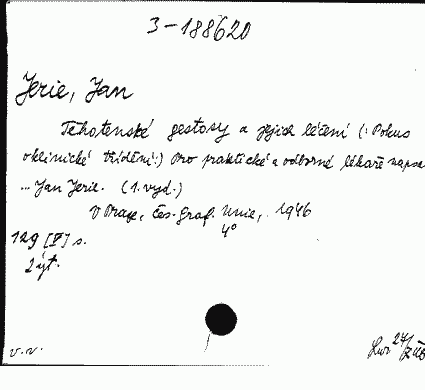 3-188620
Jerie, Jan
Těhotenské gestosy a jejich léčení (: Pokus
o klinické třídění:) Pro praktické a odborné lékaře napsa
... Jan Jerie. (1. vyd.)
V Praze, Čes. graf. Unie, 1946
4°
129 [V] s.
2 výt.
v.v.
24/